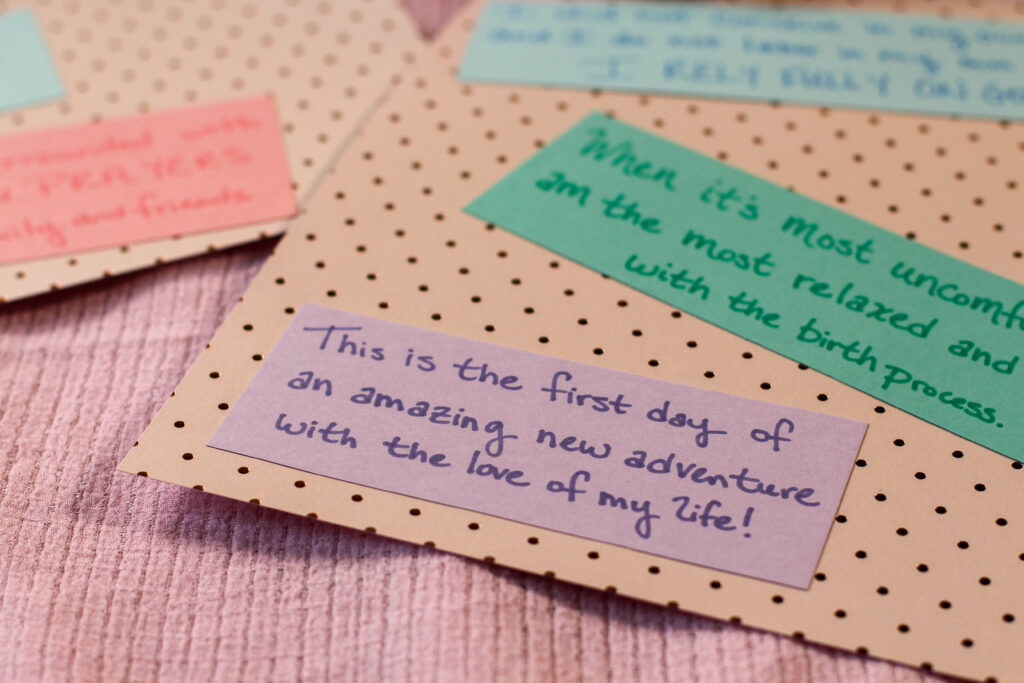 and I do not
I RELY FULLY ON
with
PRAYERS
and friends
When it's most
am the most relaxed and
with the birth process.
This is the first day of
an amazing new adventure
with the love of my life!